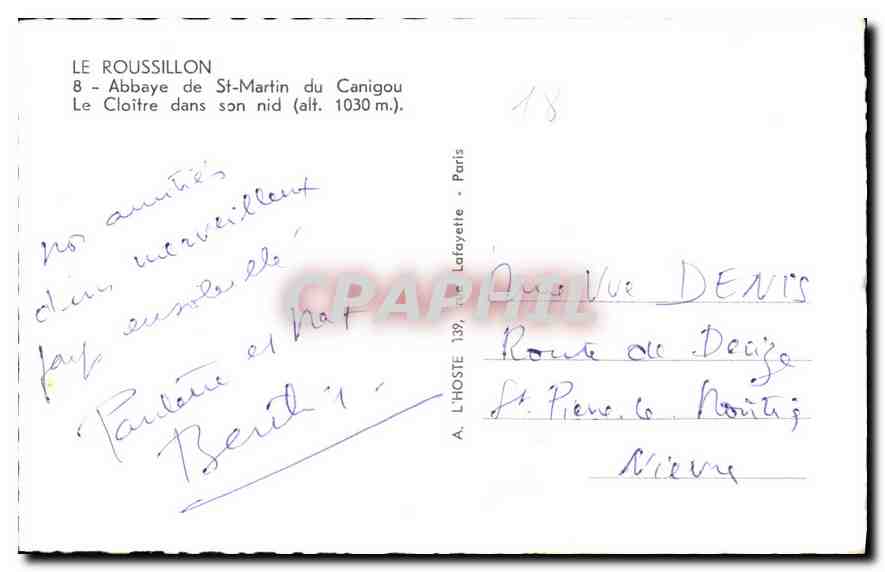 LE ROUSSILLON
8 - Abbaye de St-Martin du Canigou
Le Cloître dans son nid (alt. 1030 m.).
18
nos amitiés
d'un merveilleux
pays ensoleillé
et
A. L'HOSTE 139, rue Lafayette - Paris
CPAPHIL
Vve DENIS
Route de Decize
St Pierre le Moutier
Nievre